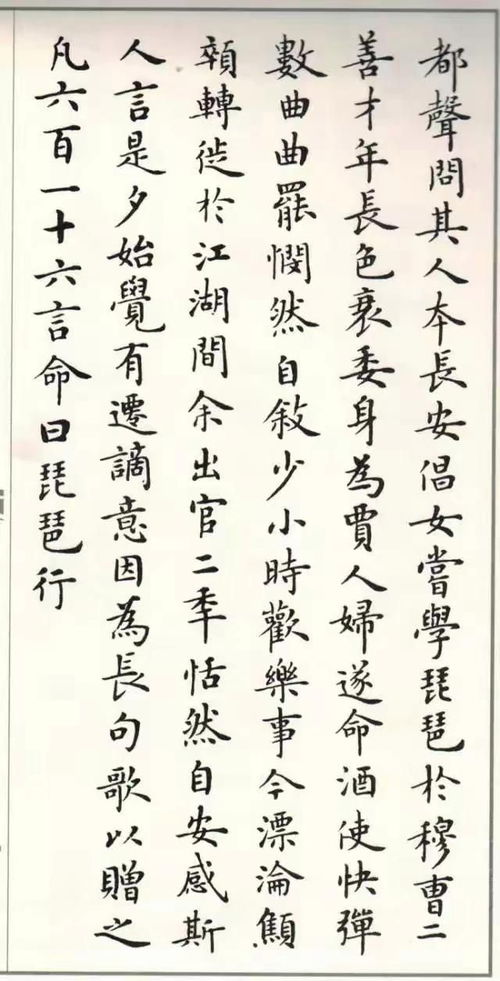 都聲問其人本長安倡女嘗學琵琶於穆曹二
善才年長色衰委身為賈人婦遂命酒使快彈
數曲曲罷憫然自敘少小時歡樂事今漂淪顦
顇轉徙於江湖間余出官二年恬然自安感斯
人言是夕始覺有遷謫意因為長句歌以贈之
凡六百一十六言命曰琵琶行